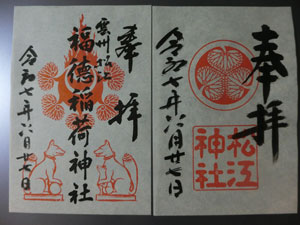 奉拝
雲州松江
福徳稲荷神社
令和七年六月廿七日
奉拝
松江神社
令和七年六月廿七日